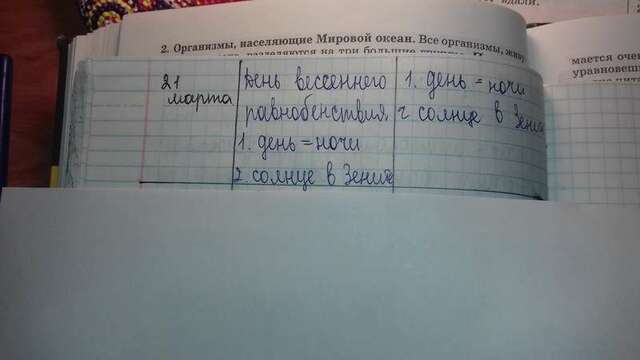 вдали.
2. Организмы, населяющие Мировой океан. Все организмы, живу
разделяются на три большие
мается очен
уравновеш
21
марта
День вессеннего
равнобенствия.
1. день = ночи
2. солнце в Зените
1. день = ночи
2 солнце в Зените